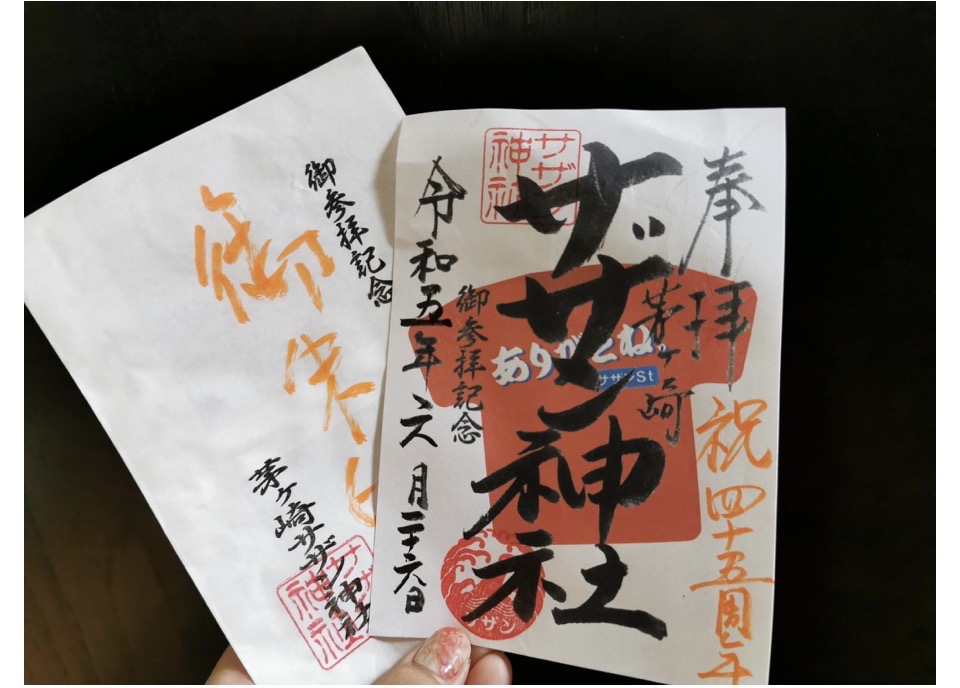 奉拝
祝四十五周年
茅ヶ崎
サザン神社
サザン神社
ありがとね。
サザンSt
御参拝記念
令和五年六月二十六日
サザン
御参拝記念
御朱
茅ヶ崎サザン神社
サザン神社